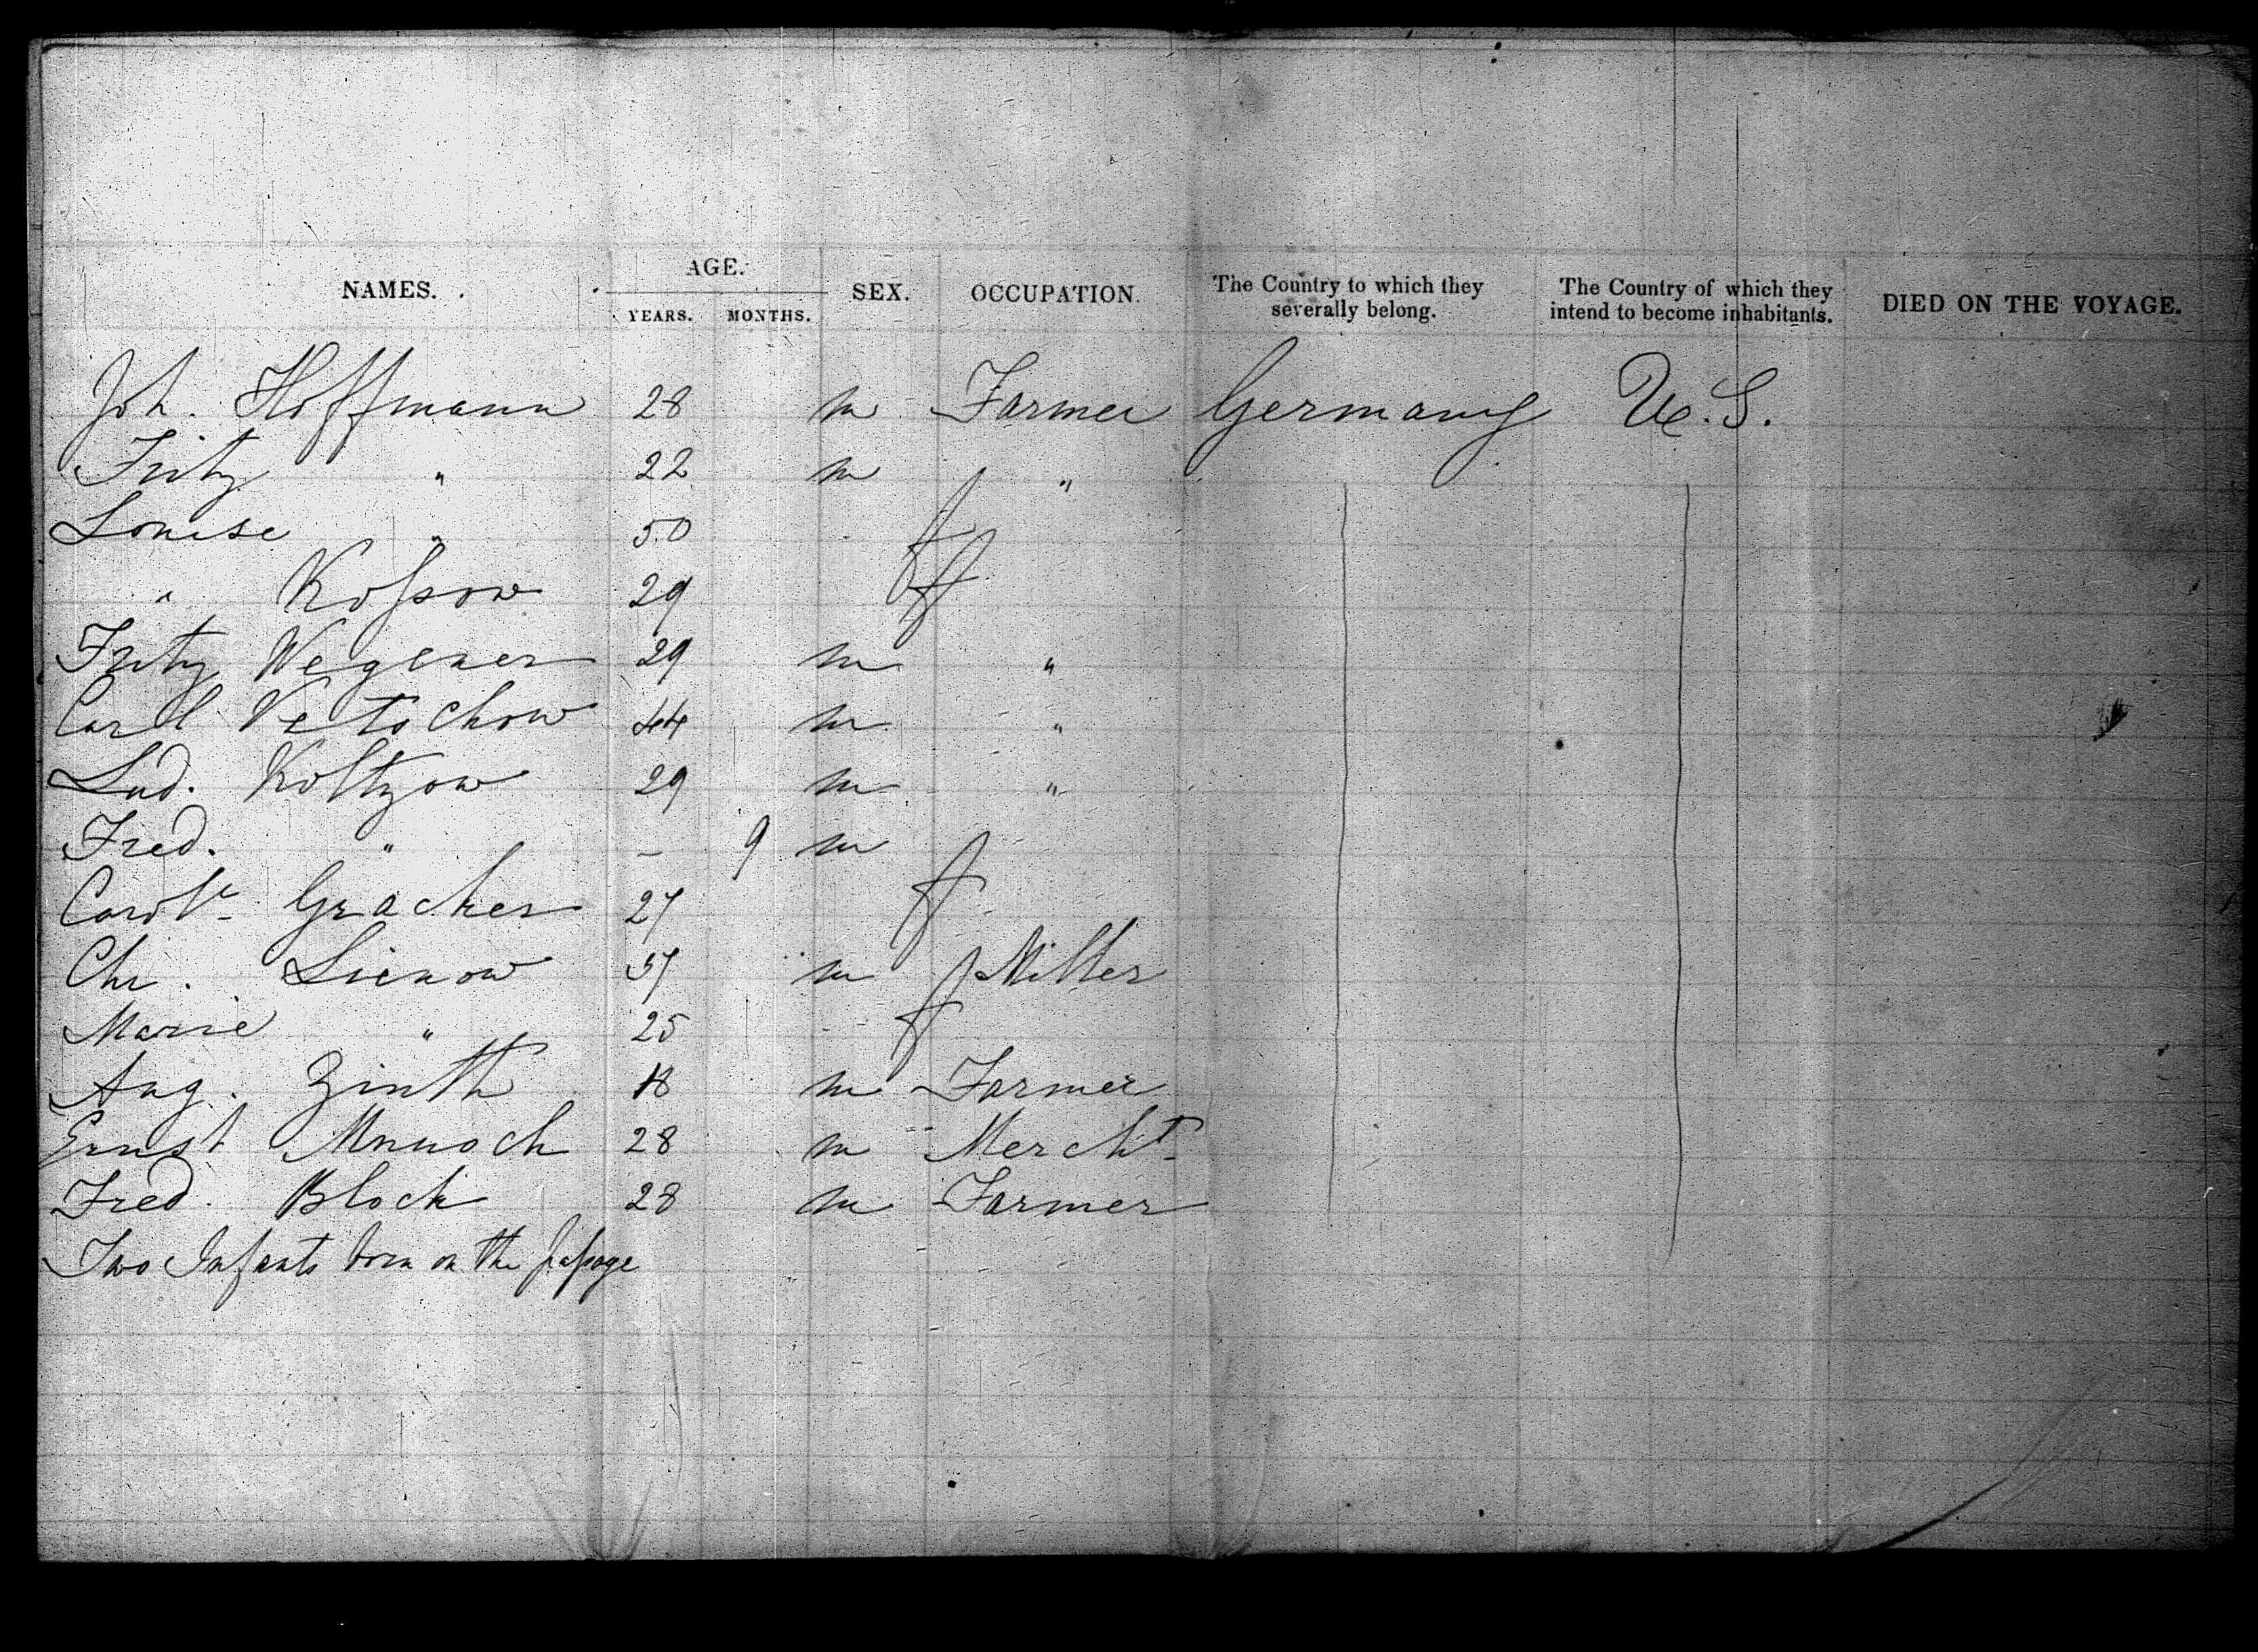 NAMES. AGE. SEX. OCCUPATION. The Country to which they severally belong. The Country of which they intend to become inhabitants. DIED ON THE VOYAGE.
YEARS. MONTHS.
Joh. Hoffmann 28 m Farmer Germany U.S.
Fritz " 22 m "
Louise " 50 f
" Koſsow 29 f
Fritz Wegener 29 m "
Carl Vetschow 44 m "
Lud. Koltzow 29 m "
Fred. " – 9 m
Carol. 27 f
Chr. Lienow 57 m Miller
Marie " 25 f
Aug. Zinth 18 m Farmer
Ernst 28 m Mercht.
Fred. Block 28 m Farmer
Two Infants born on the paſsage